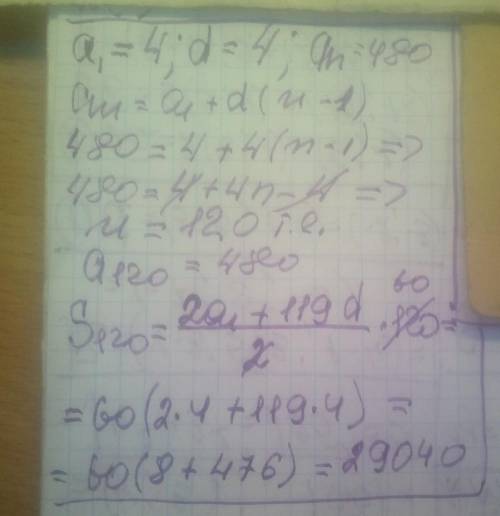 a₁ = 4; d = 4; aₙ = 480
aₙ = a₁ + d(n - 1)
480 = 4 + 4(n - 1) =>
480 = 4 + 4n - 4 =>
n = 120 т.е.
a₁₂₀ = 480
S₁₂₀ = (2a₁ + 119d)/2 · 120 60 =
= 60(2·4 + 119·4) =
= 60(8 + 476) = 29040